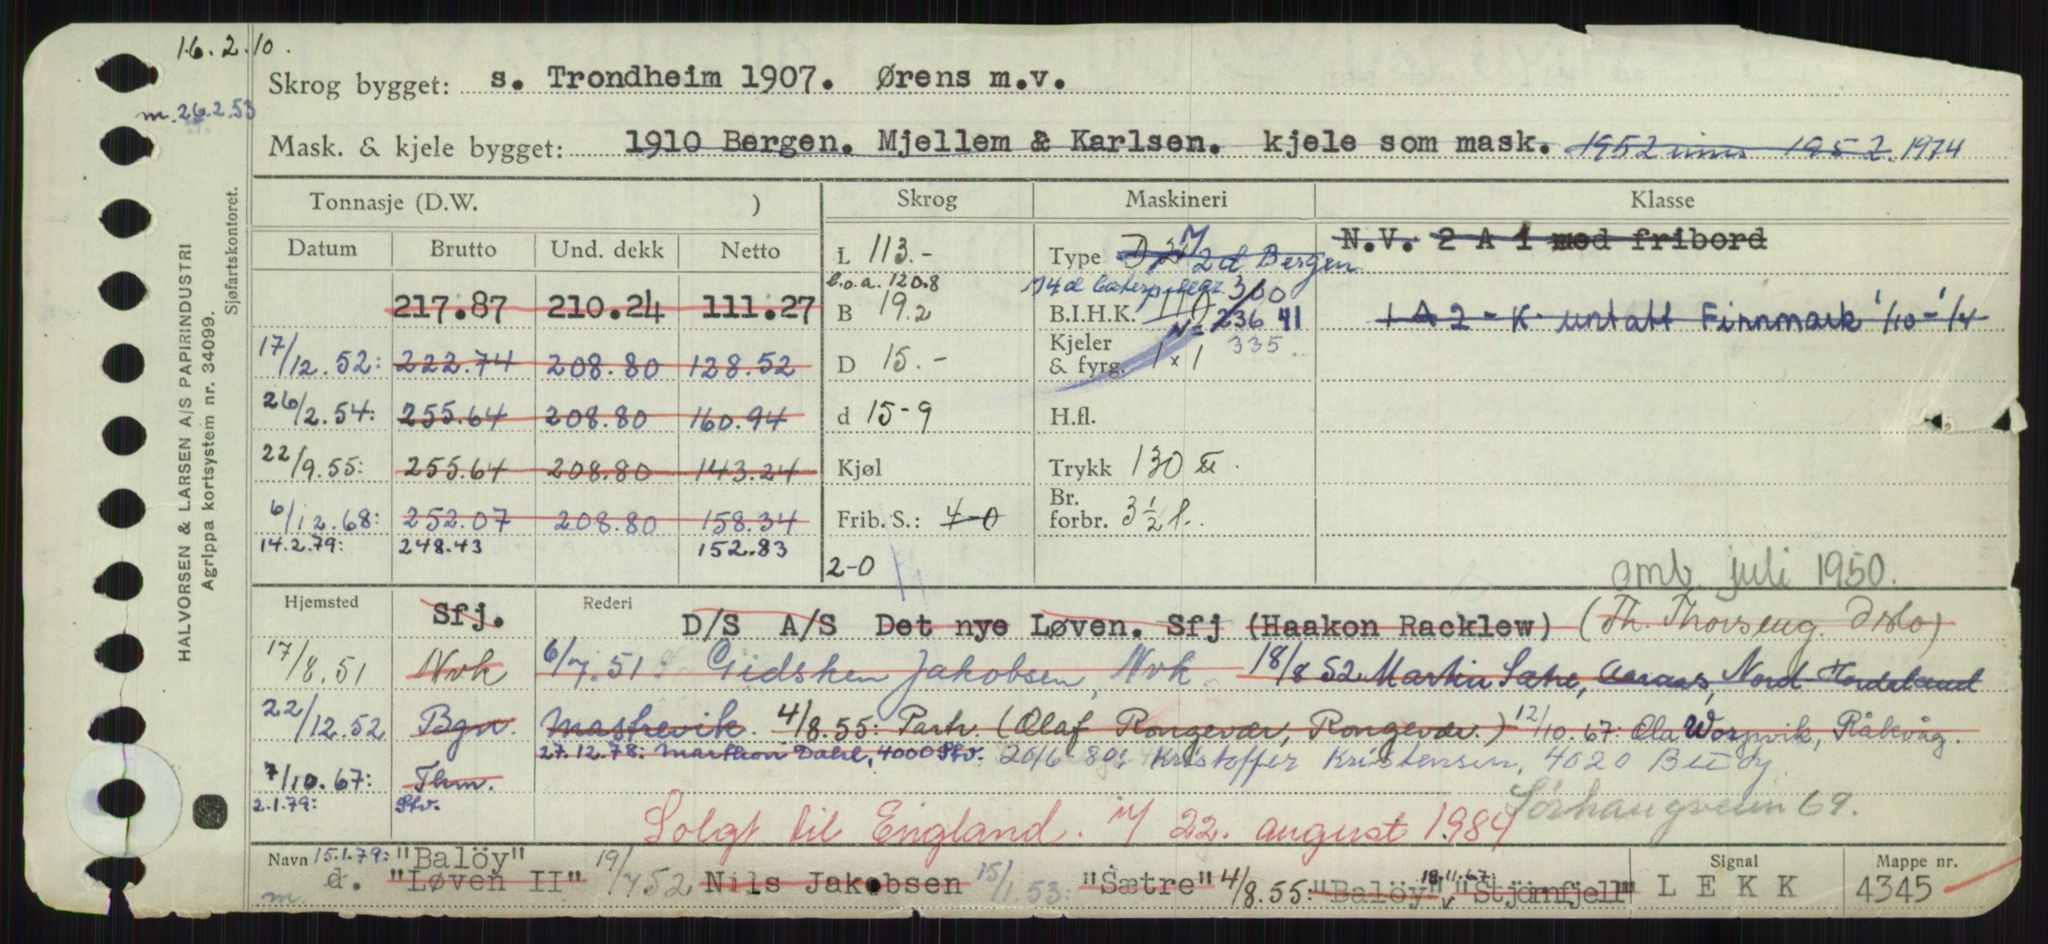 16.2.10.
Skrog bygget: s. Trondheim 1907. Ørens m.v.
m. 26.2.53
Mask. & kjele bygget: 1910 Bergen. Mjellem & Karlsen. kjele som mask. 1952 1952. 1974
HALVORSEN & LARSEN A/S PAPIRINDUSTRI
Agrippa kortsystem nr. 34099.
Sjøfartskontoret.
Tonnasje (D.W. ) Skrog Maskineri Klasse
Datum Brutto Und. dekk Netto
217.87 210.24 111.27
17/12.52: 222.74 208.80 128.52
26/2.54: 255.64 208.80 160.94
22/9.55: 255.64 208.80 143.24
6/12.68: 252.07 208.80 158.34
14.2.79: 248.43 152.83
L 113.-
l.o.a. 120.8
B 19.2
D 15.-
d 15-9
Kjøl
Frib. S.: 4-0
2-0
Type 2d Bergen
300
B.I.H.K. 110 236 41
335.
Kjeler & fyrg. 1 x 1
H.fl.
Trykk 130 ℔.
Br. forbr. 3 ½ t.
N.V. 2 A 1 med fribord
1 A 2 - K untatt Finnmark 1/10 - 1/4
omb. juli 1950.
Hjemsted Rederi
Sfj. D/S A/S Det nye Løven. Sfj (Haakon Racklew) (Th. Thorseng. Oslo)
17/8.51 Nvk 6/7.51: Gidsken Jakobsen, Nvk. 18/8 52 Martin Sætre, Aaraas, Nord Hordaland
22/12.52 Bgn. Mastrevik. 4/8.55: Partr. (Olaf Rongevær, Rongevær.) 12/10.67: Ola Worpvik, Råkvåg.
27.12.78: Marthon Dahl, 4000 Stv. 20/6-80: Kristoffer Kristensen, 4020
7/10.67: Thm.
2.1.79: Stv. Sörhaugveien 69.
Solgt til England. 22. august 1984
Navn 15.1.79: "Balöy"
m. d. "Løven II" 19/7 52 Nils Jakobsen 15/1.53: "Sætre" 4/8.55: "Balöy", 18.11.67: "Stjörnfjell"
Signal LEKK
Mappe nr. 4345